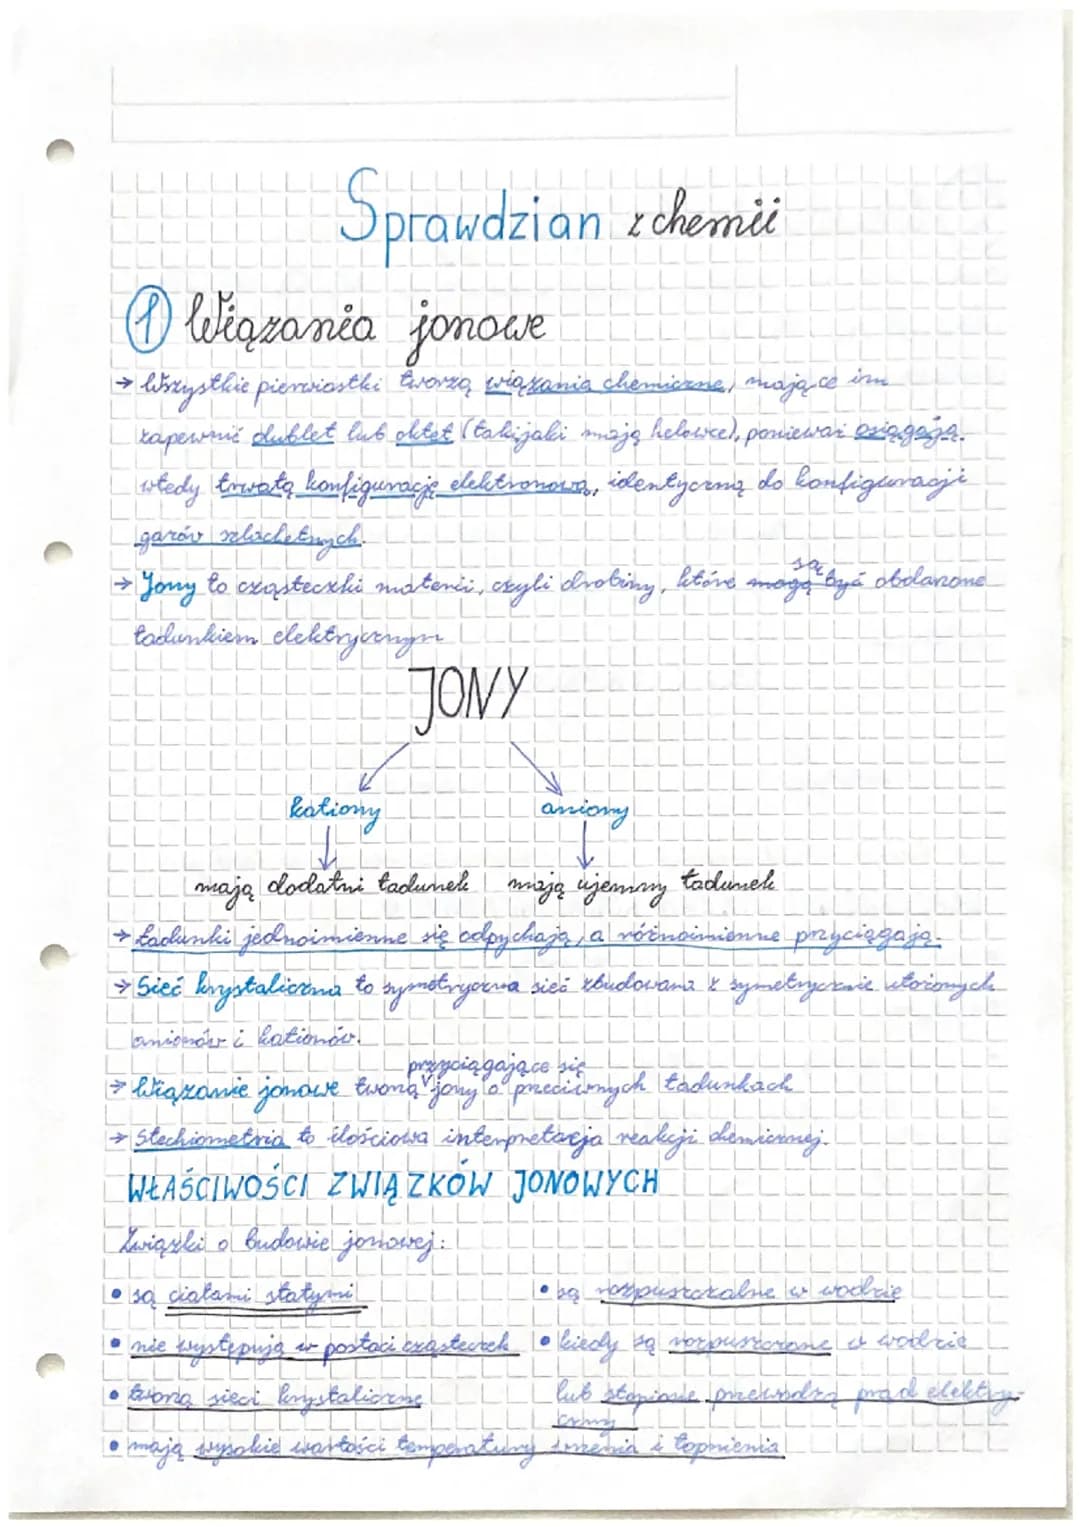 Sprawdzian z chemii
1 Wiązania jonowe
→ Wszystkie pierwiastki tworzą wiązania chemiczne, mające im
zapewnić dublet lub oktet (taki jaki mają helowce), ponieważ osiągają
wtedy trwałą konfigurację elektronową, identyczną do konfiguracji
gazów szlachetnych.
→ Jony to cząsteczki materii, czyli drobiny, które są mogą być obdarzone
ładunkiem elektrycznym
JONY
kationy aniony
mają dodatni ładunek mają ujemny ładunek
→ Ładunki jednoimienne się odpychają, a różnoimienne przyciągają.
→ Sieć krystaliczna to symetryczna sieć zbudowana z symetrycznie ułożonych
anionów i kationów.
przyciągające się
→ Wiązanie jonowe tworzą jony o przeciwnych ładunkach
→ Stechiometria to ilościowa interpretacja reakcji chemicznej.
WŁAŚCIWOŚCI ZWIĄZKÓW JONOWYCH
Związki o budowie jonowej:
• są ciałami stałymi • są rozpuszczalne w wodzie
• nie występują w postaci cząsteczek • kiedy są rozpuszczone w wodzie
• tworzą sieci krystaliczne lub stopione przewodzą prąd elektry-
czny
• mają wysokie wartości temperatury wrzenia i topnienia